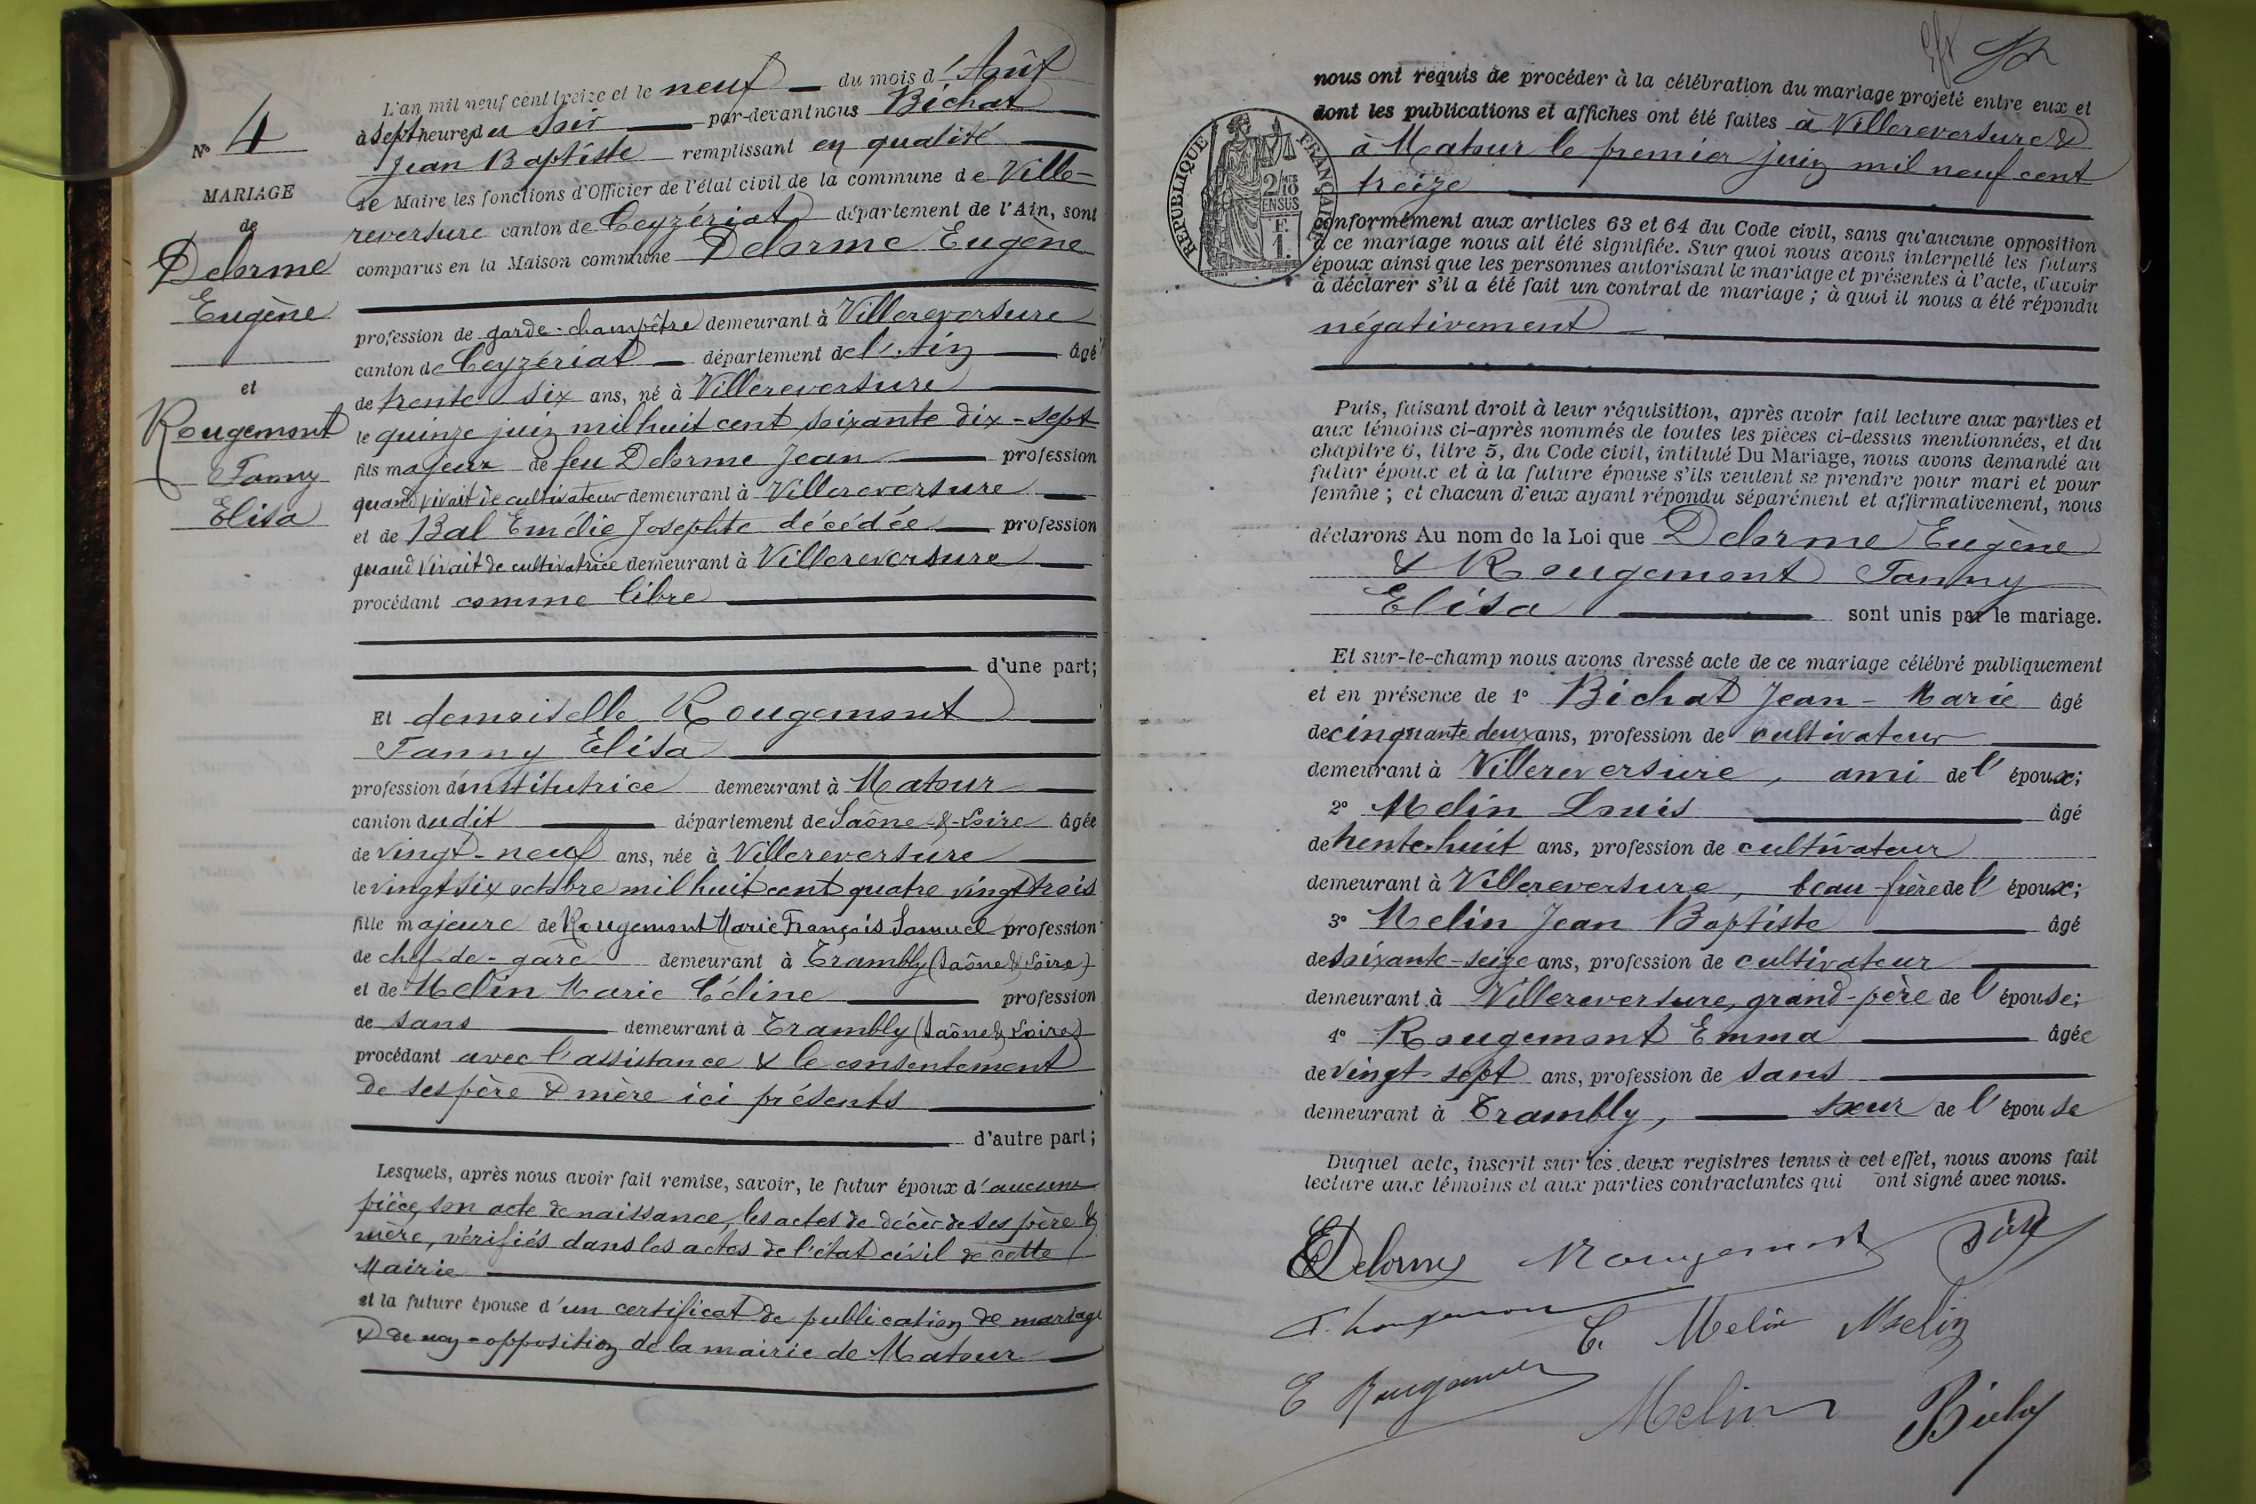 L'an mil neuf cent treize et le neuf du mois d'Août
à sept heures du soir par-devant nous Bichat
Jean Baptiste remplissant en qualité
de Maire les fonctions d'Officier de l'état civil de la commune de Ville-
reversure canton de Ceyzériat département de l'Ain, sont
comparus en la Maison commune Delorme Eugène
profession de garde-champêtre demeurant à Villereversure
canton de Ceyzériat département de l'Ain âgé
de trente six ans, né à Villereversure
le quinze juin mil huit cent soixante dix-sept
fils majeur de feu Delorme Jean profession
quand vivait de cultivateur demeurant à Villereversure
et de Bal Emélie Josephte décédée profession
quand vivait de cultivatrice demeurant à Villereversure
procédant comme libre
d'une part;
Et demoiselle Rougemont
Fanny Elisa
profession d'institutrice demeurant à Matour
canton dudit département de Saône-&-Loire âgée
de vingt-neuf ans, née à Villereversure
le vingt six octobre mil huit cent quatre vingt trois
fille majeure de Rougemont Marie François Samuel profession
de chef-de-gare demeurant à Trambly (Saône & Loire)
et de Melin Marie Céline profession
de sans demeurant à Trambly (Saône & Loire)
procédant avec l'assistance & le consentement
de ses père & mère ici présents
d'autre part;
Lesquels, après nous avoir fait remise, savoir, le futur époux d'aucune
pièce, son acte de naissance, les actes de décès de ses père &
mère, vérifiés dans les actes de l'état civil de cette
Mairie
et la future épouse d'un certificat de publication de mariage
& de non-opposition de la mairie de Matour
N° 4
MARIAGE
de
Delorme
Eugène
et
Rougemont
Fanny
Elisa
nous ont requis de procéder à la célébration du mariage projeté entre eux et
dont les publications et affiches ont été faites à Villereversure &
à Matour le premier juin mil neuf cent
treize
conformément aux articles 63 et 64 du Code civil, sans qu'aucune opposition
à ce mariage nous ait été signifiée. Sur quoi nous avons interpellé les futurs
époux ainsi que les personnes autorisant le mariage et présentes à l'acte, d'avoir
à déclarer s'il a été fait un contrat de mariage; à quoi il nous a été répondu
négativement
RÉPUBLIQUE FRANÇAISE
2/10
EN SUS
F.
1.
Puis, faisant droit à leur réquisition, après avoir fait lecture aux parties et
aux témoins ci-après nommés de toutes les pièces ci-dessus mentionnées, et du
chapitre 6, titre 5, du Code civil, intitulé Du Mariage, nous avons demandé au
futur époux et à la future épouse s'ils veulent se prendre pour mari et pour
femme; et chacun d'eux ayant répondu séparément et affirmativement, nous
déclarons Au nom de la Loi que Delorme Eugène
& Rougemont Fanny
Elisa sont unis par le mariage.
Et sur-le-champ nous avons dressé acte de ce mariage célébré publiquement
et en présence de 1° Bichat Jean-Marie âgé
de cinquante deux ans, profession de cultivateur
demeurant à Villereversure, ami de l'époux;
2° Melin Louis âgé
de trente-huit ans, profession de cultivateur
demeurant à Villereversure, beau-frère de l'époux;
3° Melin Jean Baptiste âgé
de soixante-seize ans, profession de cultivateur
demeurant à Villereversure, grand-père de l'épouse;
4° Rougemont Emma âgée
de vingt-sept ans, profession de sans
demeurant à Trambly, sœur de l'épouse
Duquel acte, inscrit sur les deux registres tenus à cet effet, nous avons fait
lecture aux témoins et aux parties contractantes qui ont signé avec nous.
E Delorme Rougemont
F. Rougemont C. Melin Melin
E Rougemont Melin Bichat